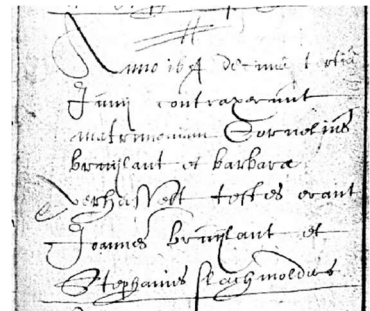 Anno 1654 decima tertia
Junij contraxerunt
matrimonium Cornelius
Bruijlant et barbara
verhasselt testes erant
Joannes Bruijlant et
Stephanus slachmolders